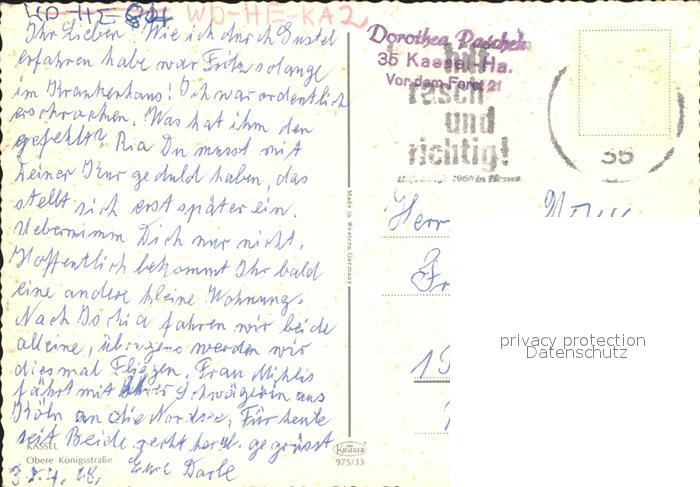 WD-HE 824 WD-HE-KA2
Ihr Lieben! Wie ich durch Gustel
erfahren habe war Fritz solange
im Krankenhaus! Ich war ordentlich
erschrocken. Was hat ihm den
gefehlt? Ria Du musst mit
Deiner Kur geduld haben, das
stellt sich erst später ein.
Uebernimm Dich nur nicht.
Hoffentlich bekommt Ihr bald
eine andere kleine Wohnung.
Nach Ischia fahren wir beide
alleine, übrigens werden wir
diesmal Fliegen. Frau
fährt mit ihrer Schwägerin aus
Köln an die Nordsee. Für heute
seit Beide recht herzl. gegrüsst
Eure
KASSEL
Obere Königsstraße
Made in Western Germany
KRÜGER
975/33
Dorothea Paschek
35 Kassel-Ha.
Vor dem Forst 21
hilf
rasch
und
richtig!
in Hessen
35
Herr
privacy protection
Datenschutz